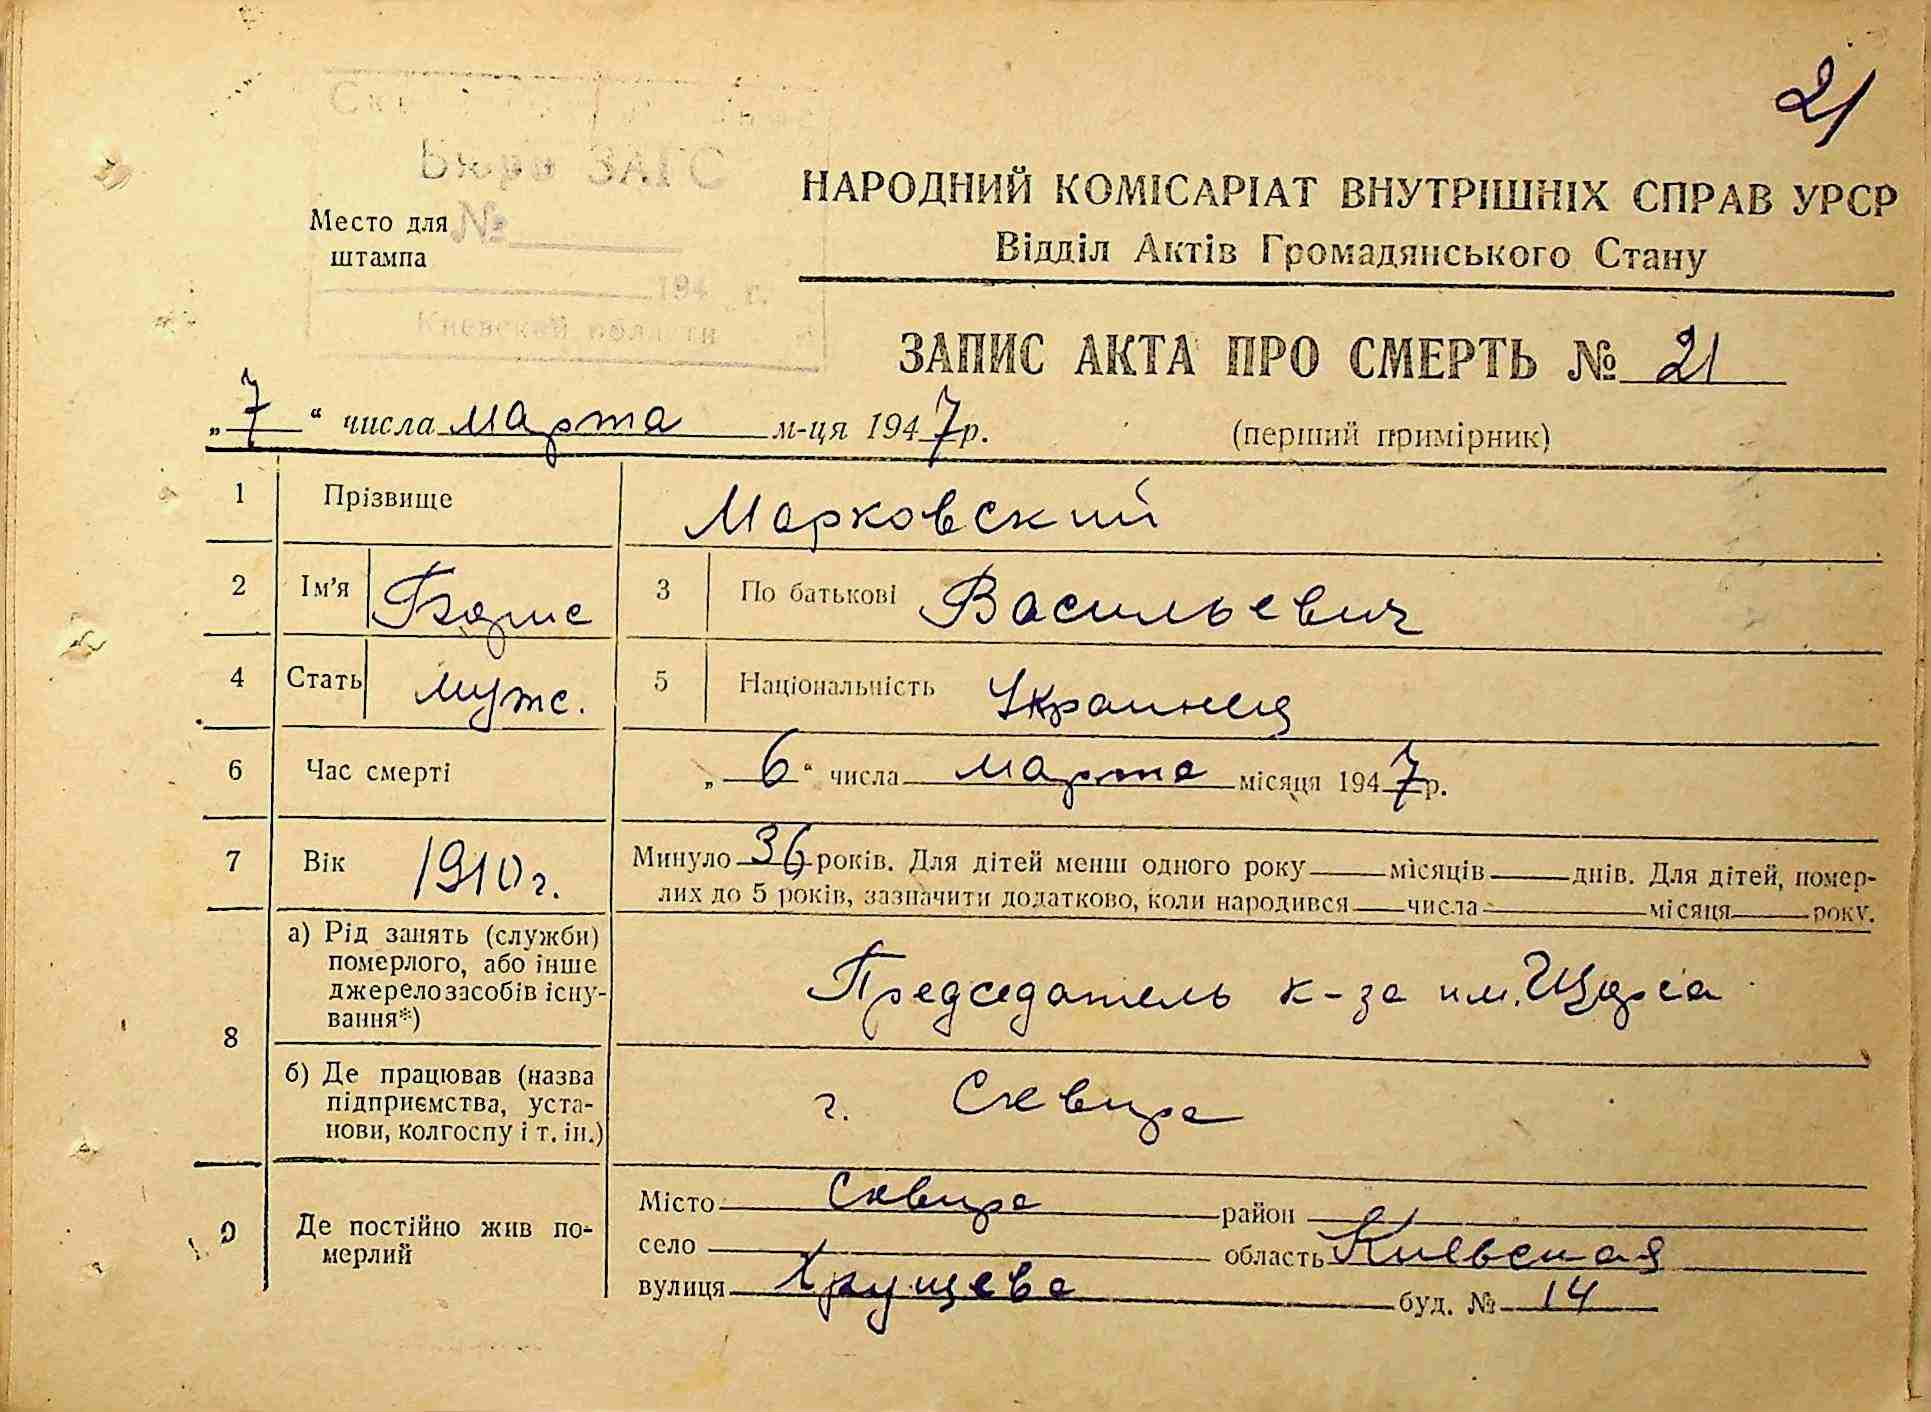 21
Бюро ЗАГС
Место для №
штампа
194 г.
Киевской области
НАРОДНИЙ КОМІСАРІАТ ВНУТРІШНІХ СПРАВ УРСР
Відділ Актів Громадянського Стану
ЗАПИС АКТА ПРО СМЕРТЬ № 21
„7“ числа марта м-ця 1947 р.
(перший примірник)
1 Прізвище Марковский
2 Ім'я Борис 3 По батькові Васильевич
4 Стать муж. 5 Національність Украинец
6 Час смерті „6“ числа марта місяця 1947 р.
7 Вік 1910 г. Минуло 36 років. Для дітей менш одного року місяців днів. Для дітей, помер-
лих до 5 років, зазначити додатково, коли народився числа місяця року.
8 а) Рід занять (служби)
померлого, або інше
джерело засобів існу-
вання*)
Председатель к-за им. Щорса
б) Де працював (назва
підприємства, уста-
нови, колгоспу і т. ін.)
г. Сквира
9 Де постійно жив по-
мерлий
Місто Сквира район
село область Киевская
вулиця Хрущева буд. № 14